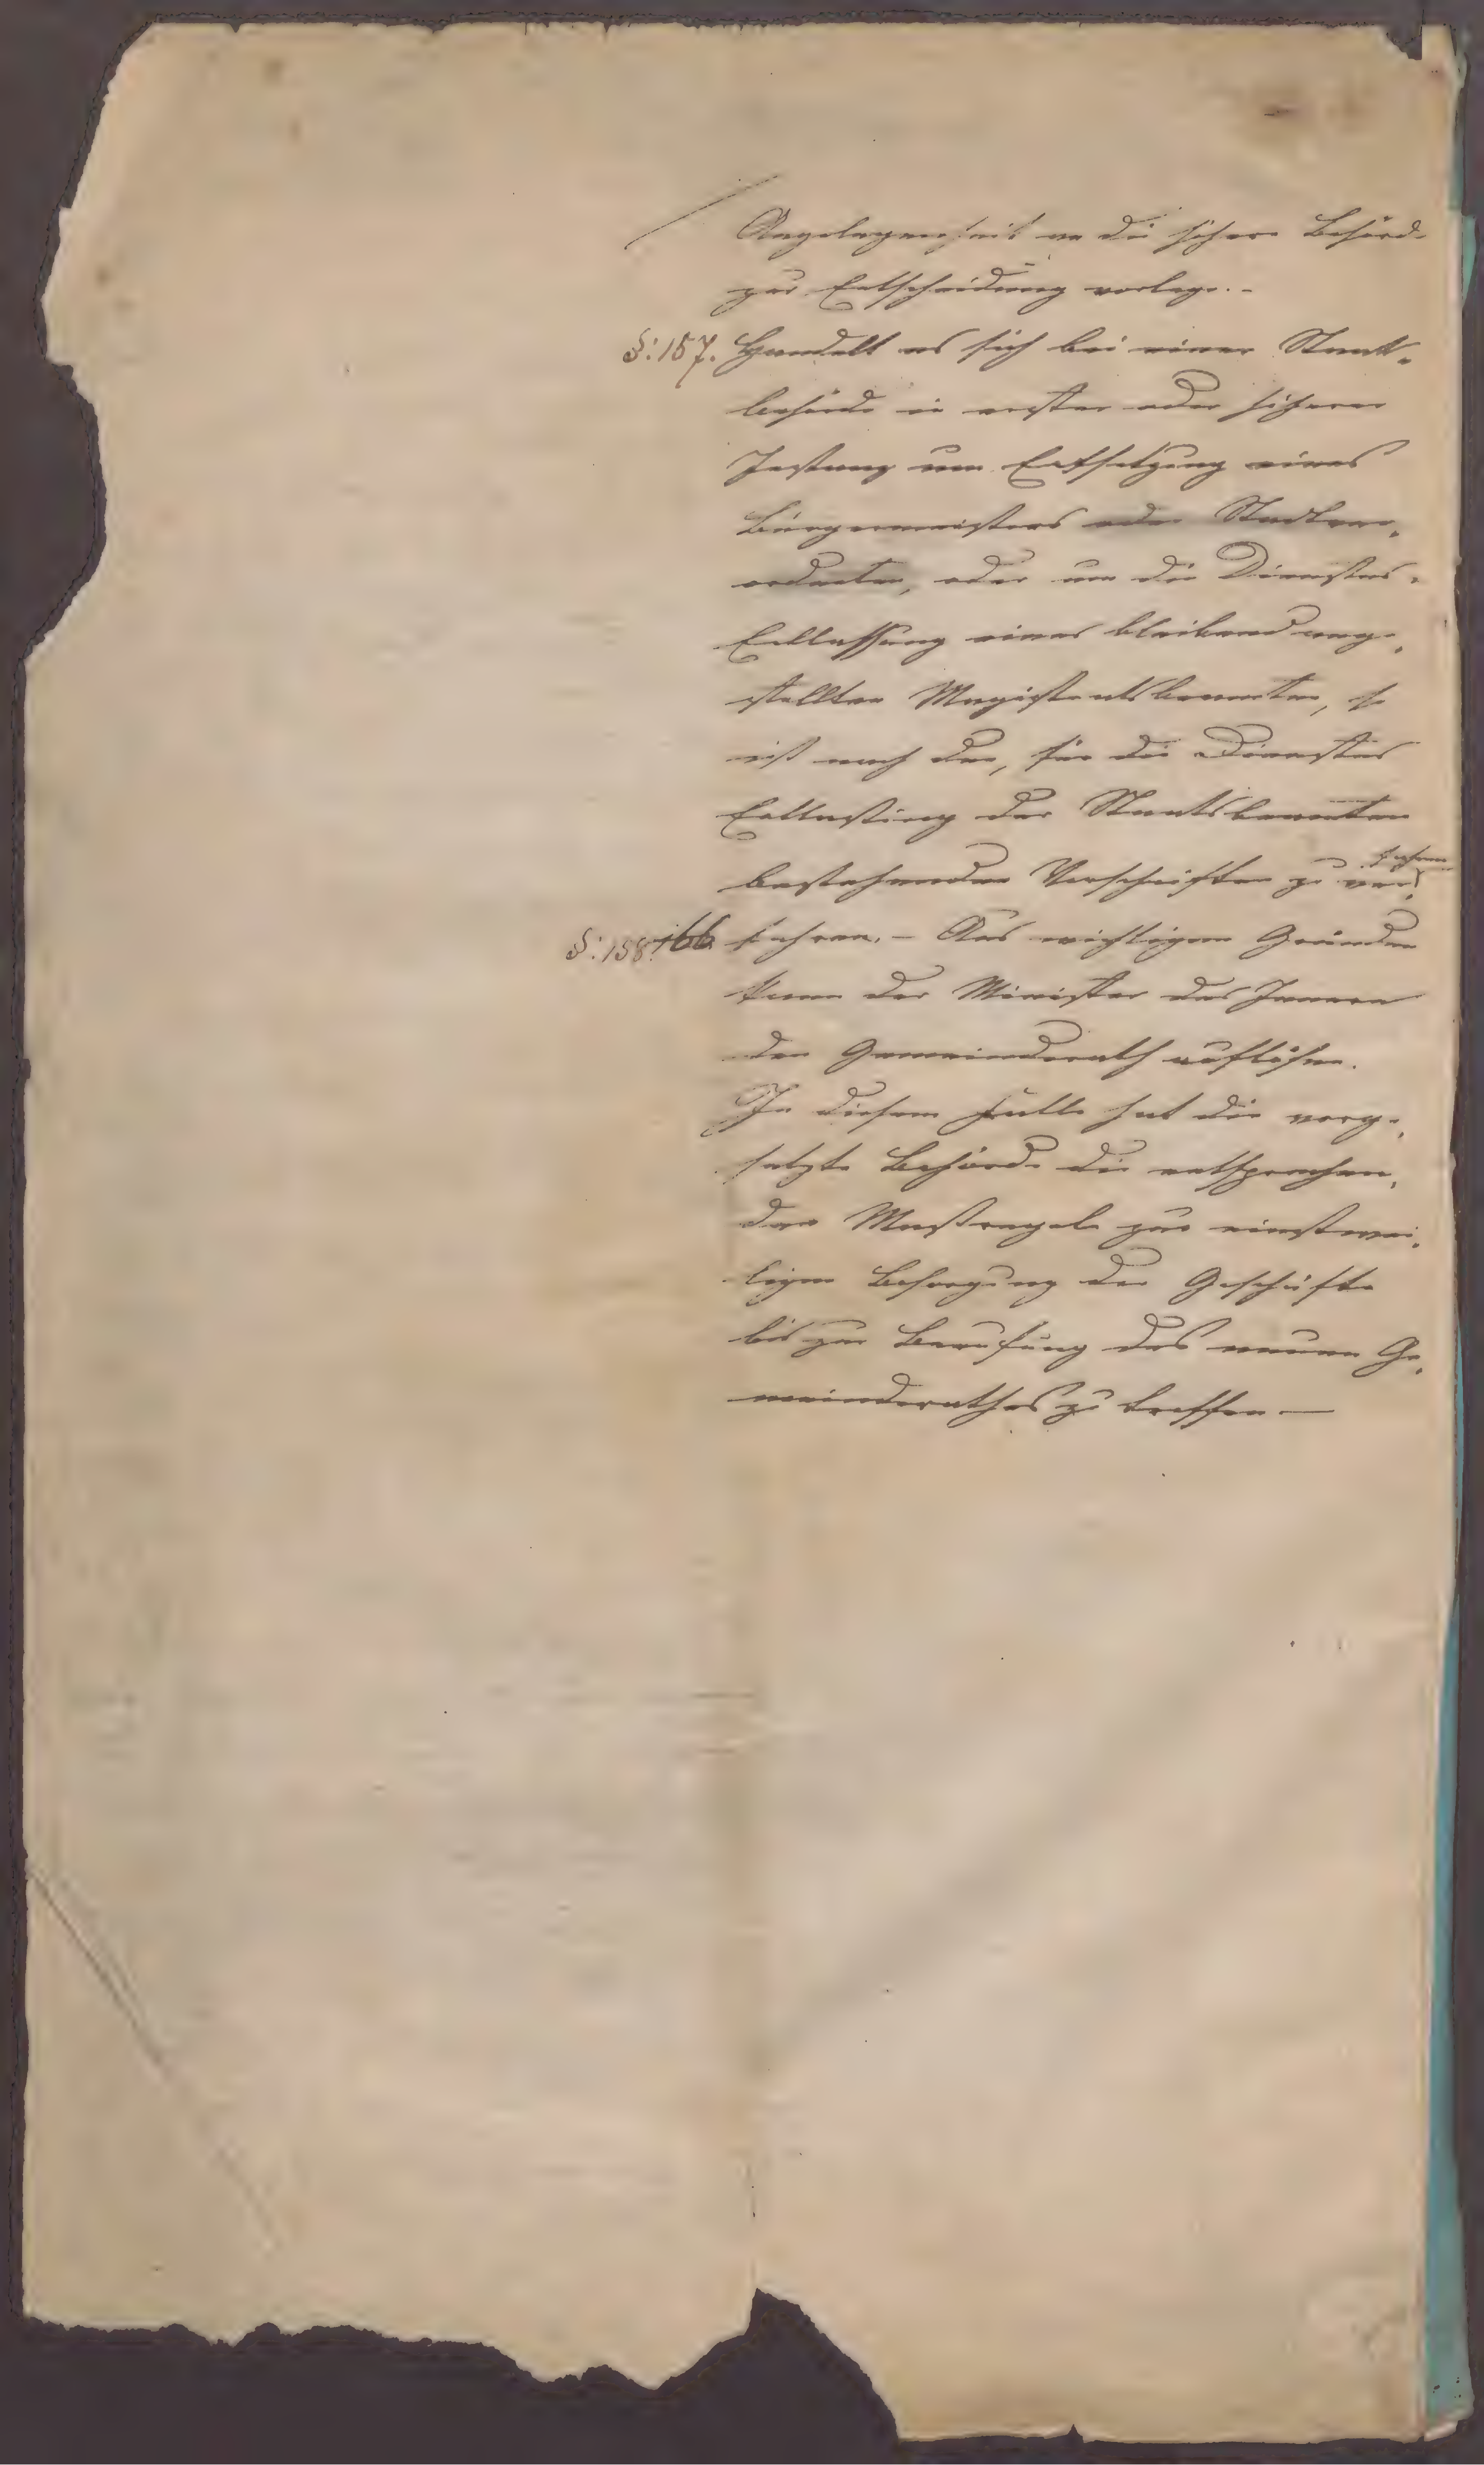 Angelegenheit an die höhere Behörde
zur Entscheidung vorlege. -
§: 157. Handelt es sich bei einer Staats-
behörde in erster oder höherer
Instanz um Entsetzung eines
Bürgermeisters oder Stadtver-
ordneten, oder um die Dienstes-
Entlassung eines bleibend ange-
stellten Magistratsbeamten, so
ist nach den, für die Dienstes
Entlassung der Staatsbeamten
bestehenden Vorschriften zu ver-
fahren
§: 158. 166. fahren. - Aus wichtigen Gründen
kann der Minister des Innern
den Gemeinderath auflösen.
In diesem Falle hat die vorge-
setzte Behörde die entsprechen-
den Maßregeln zur einstwei-
ligen Besorgung der Geschäfte
bis zur Berufung des neuen Ge-
meinderathes zu treffen —